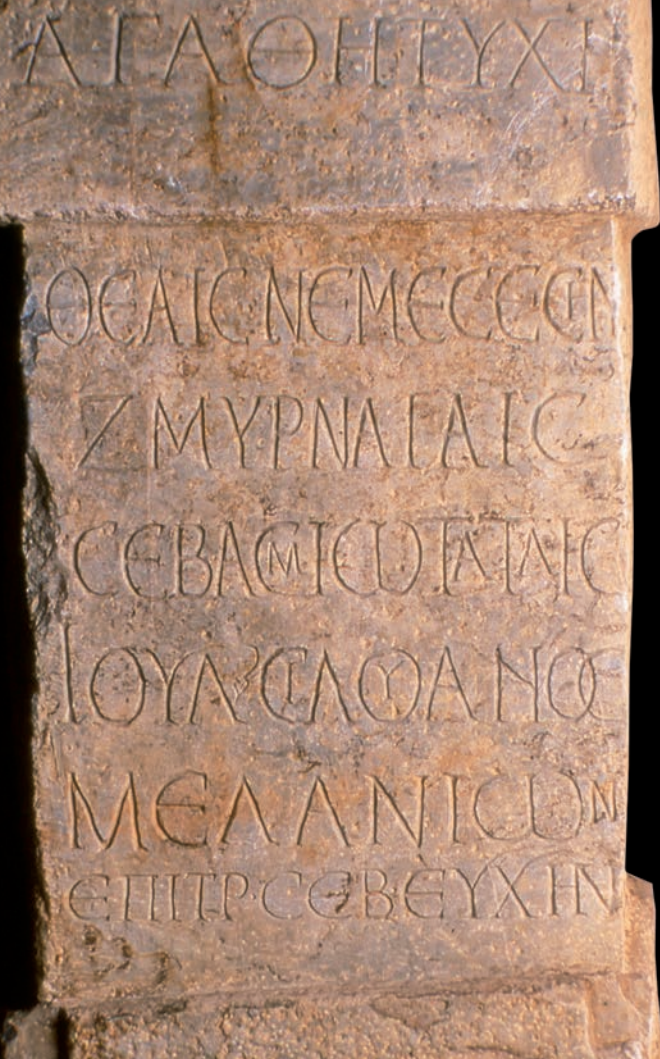 ΑΓΑΘΗΤΥΧΗ
ΘΕΑΙϹΝΕΜΕϹΕϹΙΝ
ΖΜΥΡΝΑΙΑΙϹ
ϹΕΒΑϹΜΙΩΤΑΤΑΙϹ
ΙΟΥΛ ϹΙΛΟΥΑΝΟϹ
ΜΕΛΑΝΙΩΝ
ΕΠΙΤΡ·ϹΕΒ·ΕΥΧΗΝ